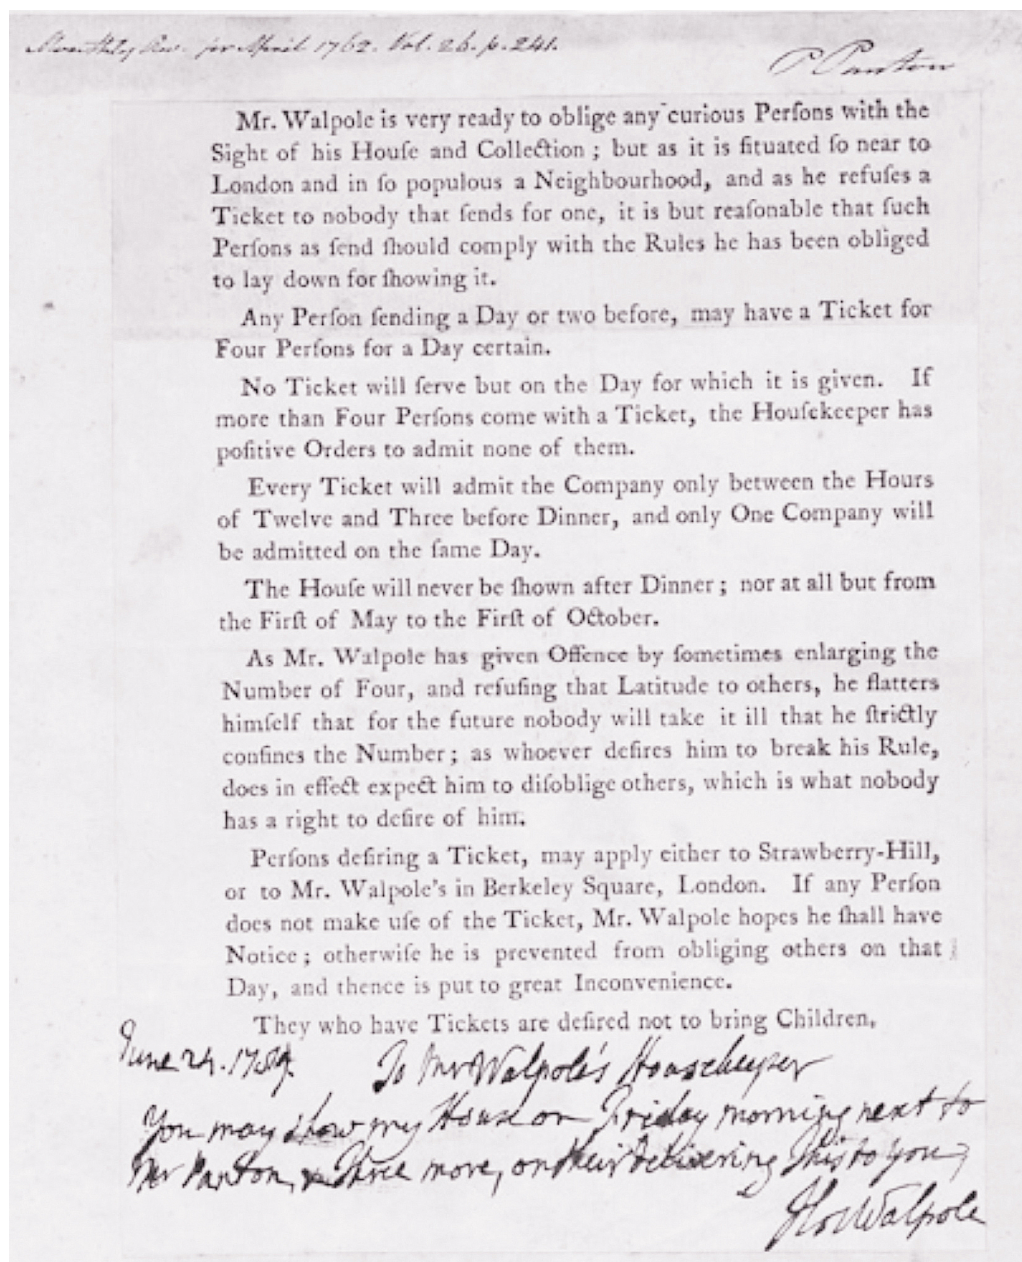 Monthly Rev. for April 1762. Vol. 26. p. 241.
P Panton
Mr. Walpole is very ready to oblige any curious Perſons with the
Sight of his Houſe and Collection ; but as it is ſituated ſo near to
London and in ſo populous a Neighbourhood, and as he refuſes a
Ticket to nobody that ſends for one, it is but reaſonable that ſuch
Perſons as ſend ſhould comply with the Rules he has been obliged
to lay down for ſhowing it.
Any Perſon ſending a Day or two before, may have a Ticket for
Four Perſons for a Day certain.
No Ticket will ſerve but on the Day for which it is given. If
more than Four Perſons come with a Ticket, the Houſekeeper has
poſitive Orders to admit none of them.
Every Ticket will admit the Company only between the Hours
of Twelve and Three before Dinner, and only One Company will
be admitted on the ſame Day.
The Houſe will never be ſhown after Dinner ; nor at all but from
the Firſt of May to the Firſt of October.
As Mr. Walpole has given Offence by ſometimes enlarging the
Number of Four, and refuſing that Latitude to others, he flatters
himſelf that for the future nobody will take it ill that he ſtrictly
confines the Number ; as whoever deſires him to break his Rule,
does in effect expect him to diſoblige others, which is what nobody
has a right to deſire of him.
Perſons deſiring a Ticket, may apply either to Strawberry-Hill,
or to Mr. Walpole's in Berkeley Square, London. If any Perſon
does not make uſe of the Ticket, Mr. Walpole hopes he ſhall have
Notice ; otherwiſe he is prevented from obliging others on that
Day, and thence is put to great Inconvenience.
They who have Tickets are deſired not to bring Children.
June 24. To Mr Walpole's Housekeeper
You may show my House on Friday morning next to
Mr Panton, & Three more, on their delivering This to you,
Hor Walpole